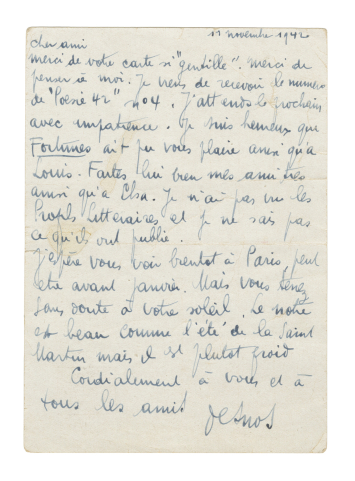 11 novembre 1942
cher ami
merci de votre carte si "gentille". merci de
penser à moi. Je viens de recevoir le numero
de "Poesie 42" n°4. J'attends le prochain
avec impatience. Je suis heureux que
Fortunes ait pu vous plaire ainsi qu'à
Louis. Faites lui bien mes amitiés
ainsi qu'a Elsa. Je n'ai pas vu les
Propos litteraires et je ne sais pas
ce qu'ils ont publié.
J'espère vous voir bientot à Paris, peut
etre avant janvier. Mais vous tenez
sans doute à votre soleil. Le notre
est beau comme l'été de la Saint
Martin mais il est plutot froid
Cordialement à vous et à
tous les amis
Desnos